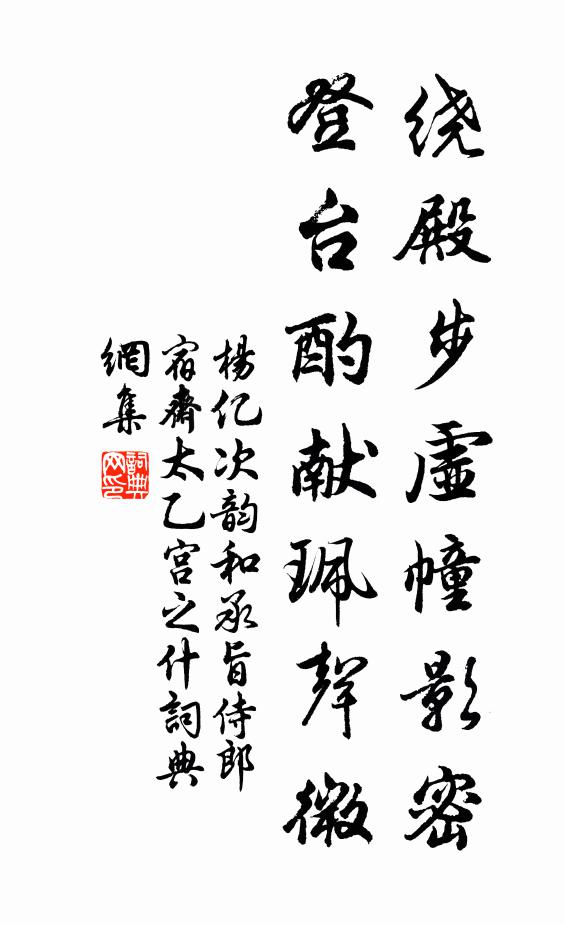 绕殿步虚幢影密
登台酌献珮聲微
楊亿次韵和承旨侍郎
宿齋太乙宫之什詞典
網集
詞典网印